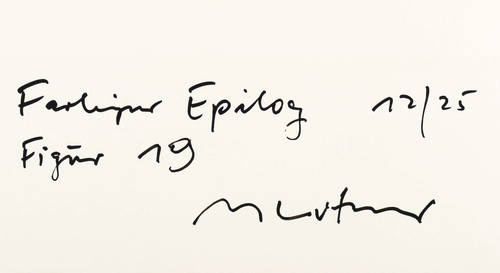 Farbiger Epilog 12/25
Figur 19